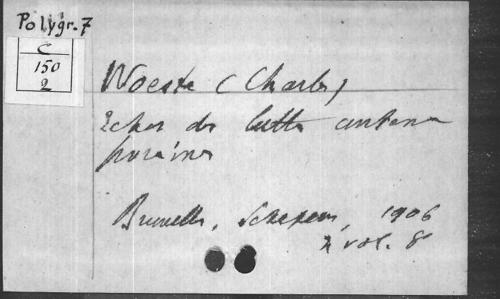 Polygr. 7
C
150
2
Woeste (Charles)
Echos des luttes contempo
raines
Bruxelles, Schepens, 1906
2 vol. 8°